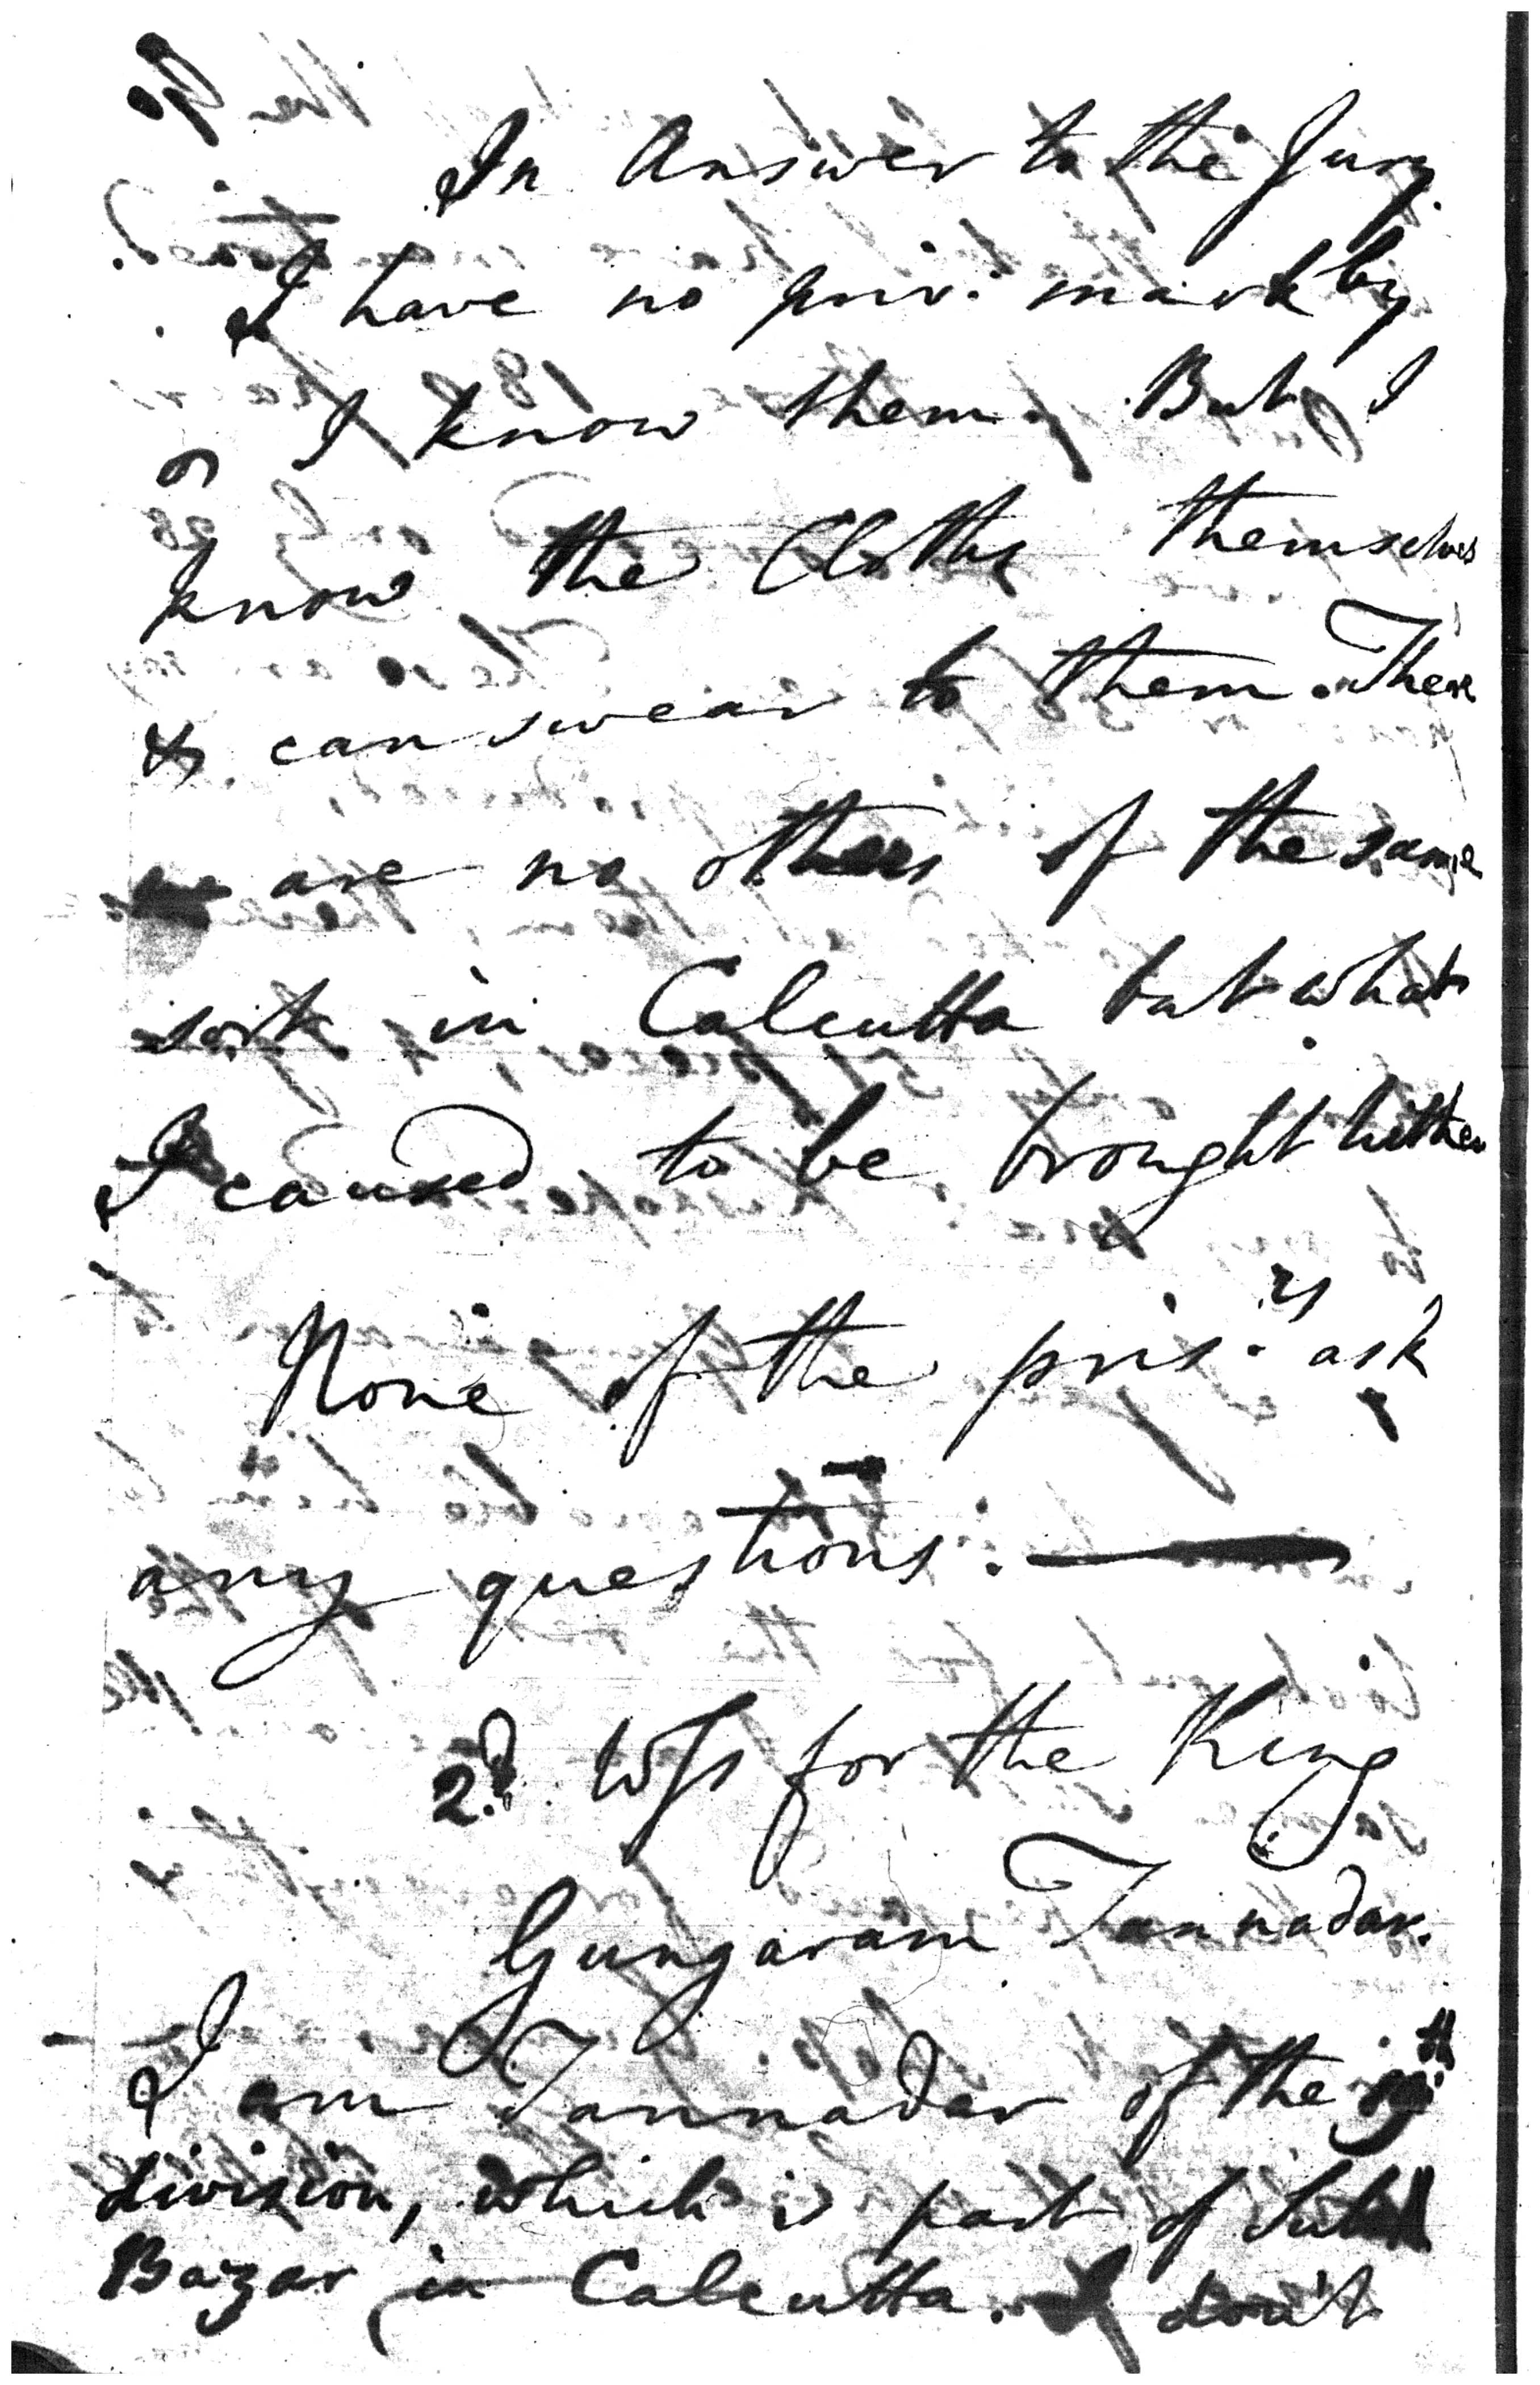 In Answer to the Jury.
I have no priv: mark by
I know them. But I
know the Cloths themselves
& can swear to them. There
are no others of the same
sort in Calcutta but what
I caused to be brought hither
None of the pris:rs ask
any questions.
2.d Wss for the King
Gungaram Tannadar.
I am Tannadar of the th
division, which is part of
Bazar in Calcutta. I don't